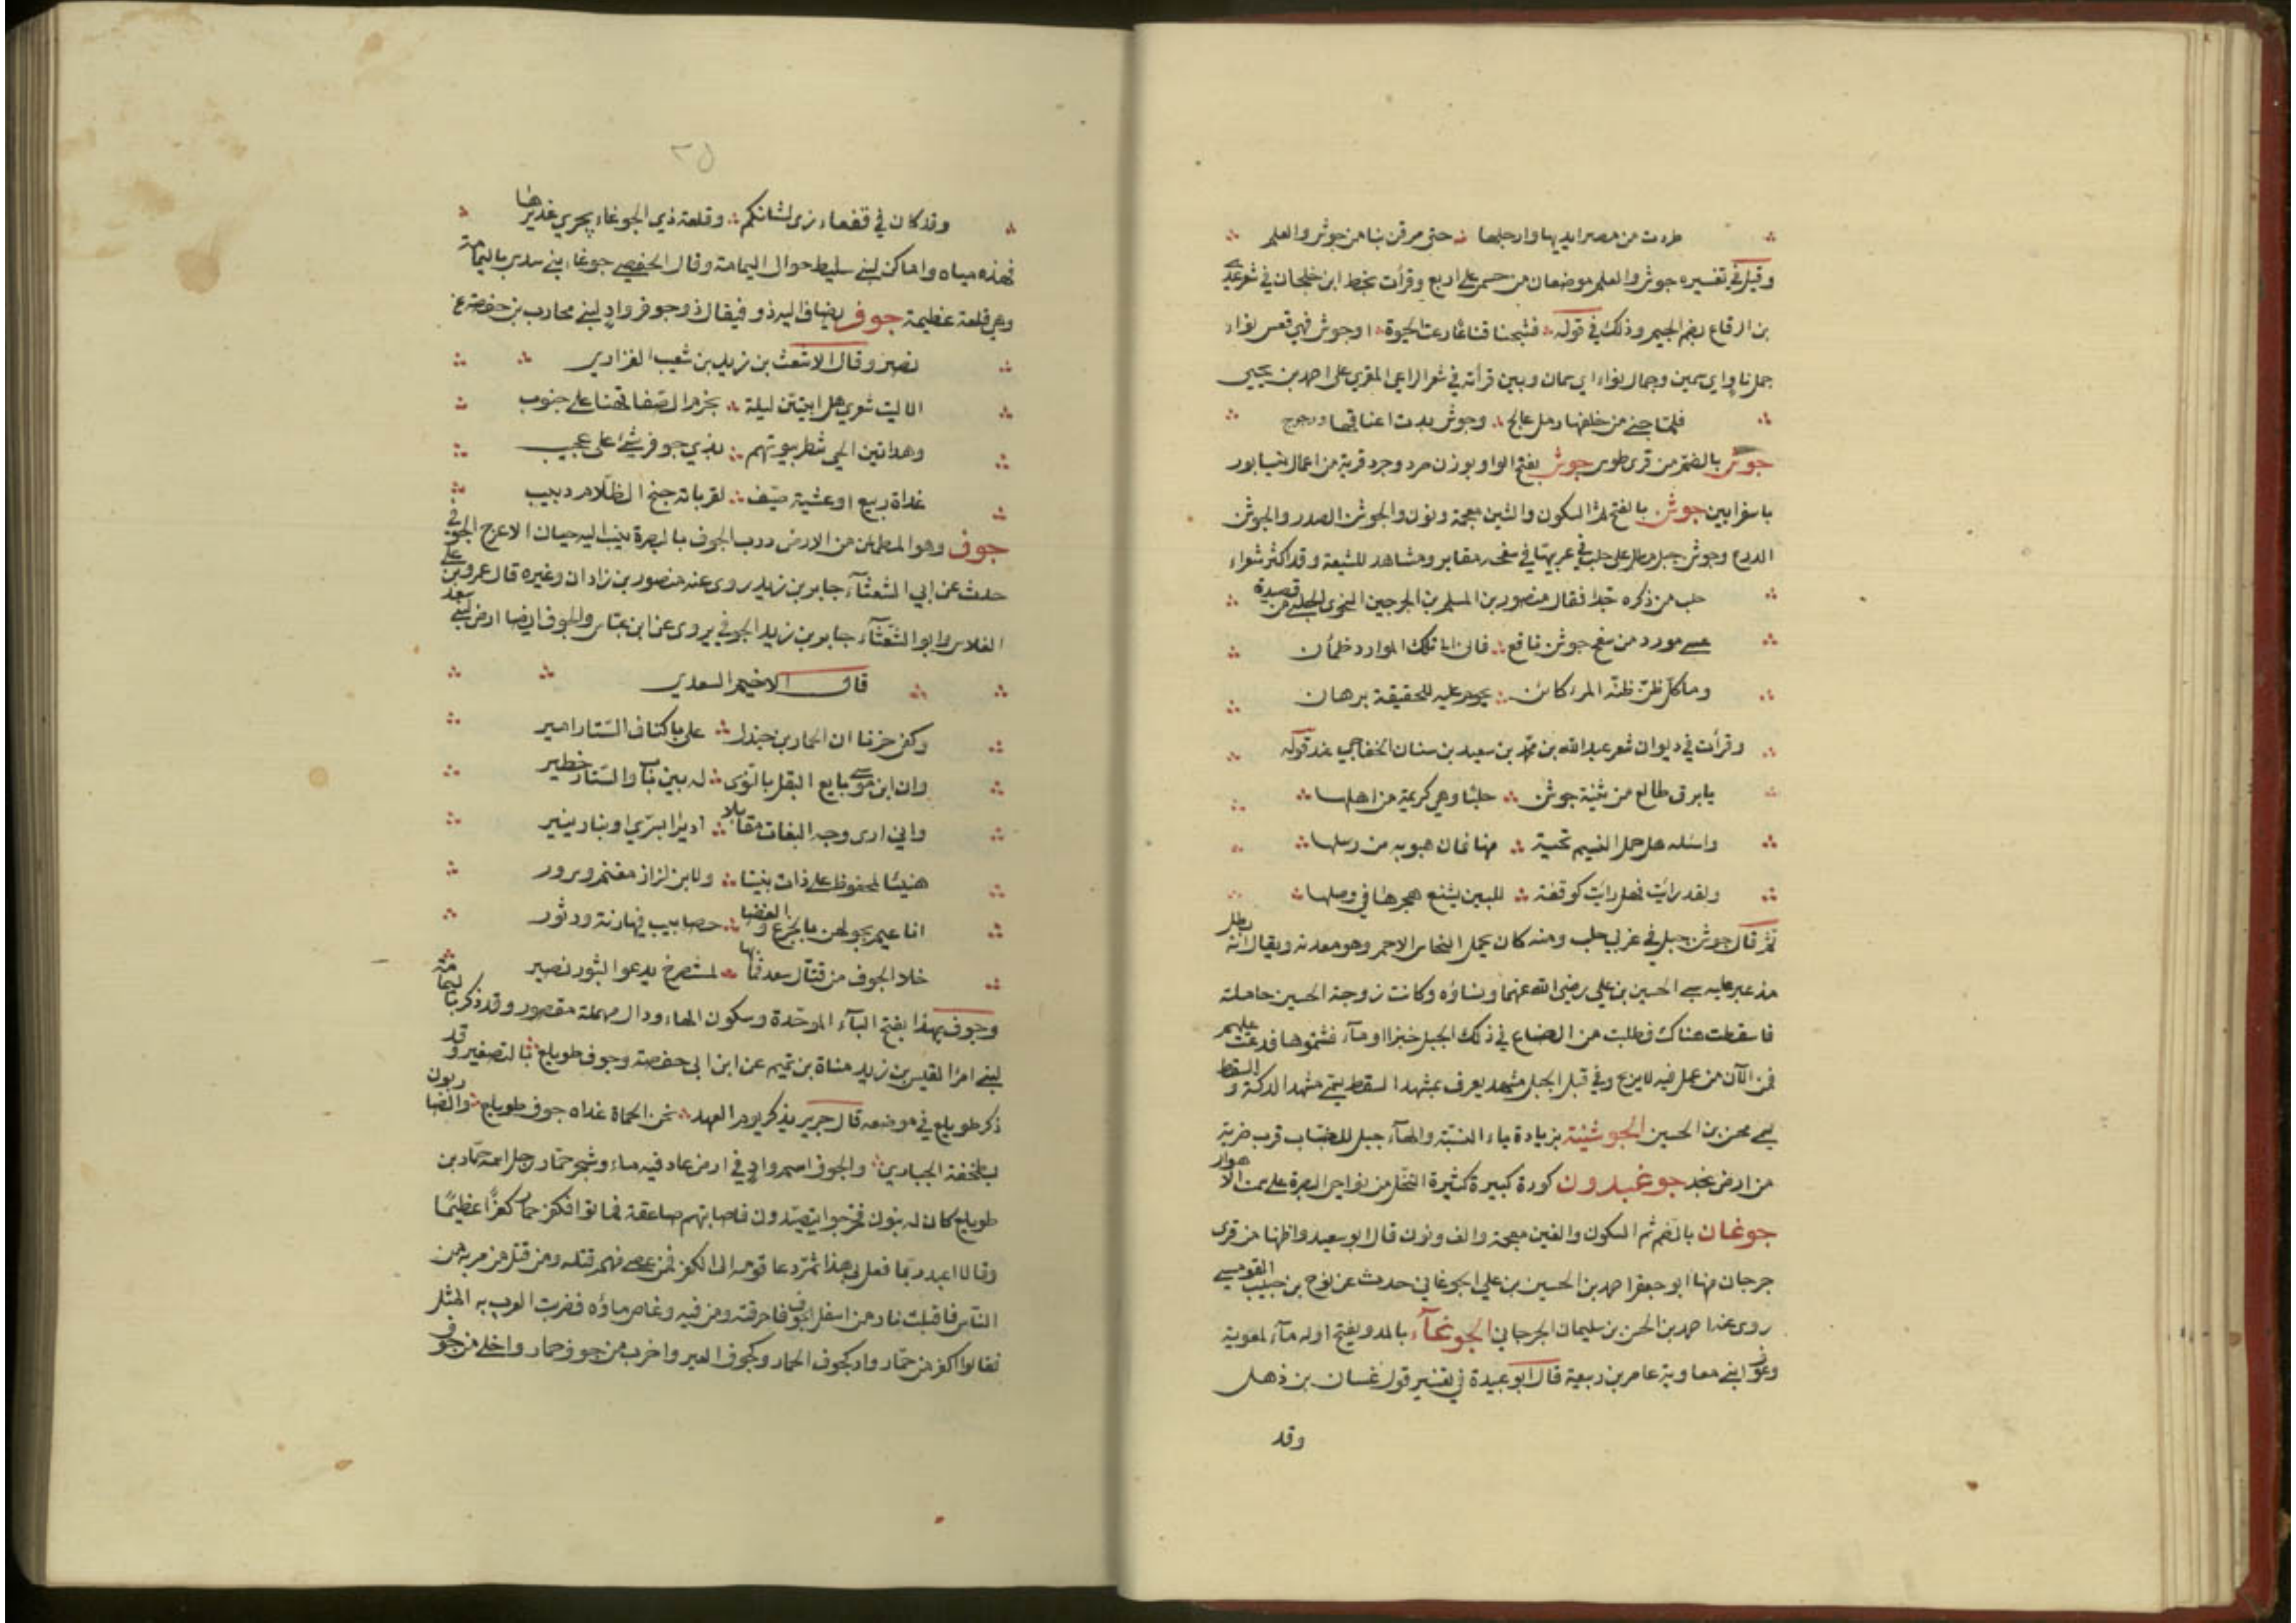 طردت من مصر ايديها وارجلها حتى مرقن بنا من جوش والعلم
وقيل في تفسيره جوش والعلم موضعان من حسمى على اربع وقرأت بخط ابن خلجان في شعر عدي
بن الرقاع بضم الجيم وذلك في قوله فشبحنا قناعا رعت الحيوة او جوش فهي قعس نواء
جمل ناو اي سمين وجمال نواء اي سمان وبين قرأته في شعر الراعي المقري على احمد بن يحيى
فلما حبى من خلفها رمل عالج وجوش بدت اعناقها ودجوج
جوش بالضم من قرى طوس جوش بفتح الواو بوزن صرد وجرد قرية من اعمال نيسابور
باسفرايين جوشن بالفتح ثم السكون والشين معجمة ونون والجوشن الصدر والجوشن
الدرع وجوشن جبل مطل على حلب في غربيها في سفحه مقابر ومشاهد للشيعة وقد اكثر شعراء
حلب من ذكره جدا فقال منصور بن المسلم بن الخرجين النحوي الحلبي من قصيدة
عسى مورد من سفح جوشن ناقع فاني الى تلك الموارد ظمآن
وما كل ظن ظنه المرء كائن يحوم عليه للحقيقة برهان
وقرأت في ديوان شعر عبد الله بن محمد بن سعيد بن سنان الخفاجي عند قوله
يا برق طالع من ثنية جوشن حلبا وهي كريمة من اهلها
واسئله هل حمل النسيم تحية منها فان هبوبه من رسلها
ولقد رايت فهل رايت كوقفة للبين يشفع هجرها في وصلها
ثم قال جوشن جبل في غربي حلب ومنه كان يحمل النحاس الاحمر وهو معدنه ويقال انه بطل
مذ عبر عليه سبي الحسين بن علي رضي الله عنهما ونساؤه وكانت زوجة الحسين حاملة
فاسقطت هناك فطلبت من الصناع في ذلك الجبل خبزا او ماء فشتموها فدعت عليهم
فمن الآن من عمل فيه لا يربح وفي قبل الجبل مشهد يعرف بمشهد السقط يسمى مشهد الدكة والسقط
يسمى محسن بن الحسين الجوشنية بزيادة ياء النسبة والهاء جبل للضباب قرب ضرية
من ارض نجد جوغبدون كورة كبيرة كثيرة النخل من نواحي البصرة على سمت الاهواز
جوغان بالضم ثم السكون والغين معجمة والف ونون قال ابو سعيد واظنها من قرى
جرجان منها ابو جعفر احمد بن الحسين بن علي الجوغاني حدث عن نوح بن حبيب القومسي
روى عنه احمد بن الحسن بن سليمان الجرجاني الجوغاء بالمد وبفتح اوله ماء لمعوية
وعوف ابني معاوية عامر بن ربيعة قال ابو عبيدة في تفسير قول غسان بن ذهل
وقد
٢٥
وقد كان في قفعاء ري لشانكم وقلعة ذي الجوغاء يجري غديرها
فهذه مياه واماكن لبني سليط حوال اليمامة وقال الحفصي جوغاء بني سدير باليمامة
وهي قلعة عظيمة جوفر يضاف اليه ذو فيقال ذو جوفر واد لبني محارب بن خصفة عن
نصر وقال الاشعث بن زيد بن شعيب الفزاري
الا ليت شعري هل ابيتن ليلة بحزم الصفا تهفو علي جنوب
وهل اتين الحي شطر بيوتهم بذي جوفر شئ علي عجيب
غداة ربيع او عشية صيف لقربانه جنح الظلام دبيب
جوف وهو المطمئن من الارض درب الجوف بالبصرة ينسب اليه حيان الاعرج الجوفي
حدث عن ابي الشعثاء جابر بن زيد روى عنه منصور بن زاذان وغيره قال عمرو بن علي
الفلاس وابو الشعثاء جابر بن زيد الجوفي يروي عن ابن عباس والجوف ايضا ارض لبني سعد
قال الاحيمر السعدي
وكفى حزنا ان الحمار بن جندل علي باكناف الستار امير
وان ابن موسى بايع البقل بالنوى له بين باب والستار خطير
واني ارى وجه البغاة مقابلا اديرا لبسري او بنار ينير
هنيئا لمحفوظ على ذات بيننا ولابن لزاز مغنم وبرور
اناعيم يحويهن بالجزع والغضا جعابيب فيها رثة ودثور
خلا الجوف من قتال سعد فما بها لمستصرخ يدعو الثبور نصير
وجوف بهدا بفتح الباء الموحدة وسكون الهاء ودال مهملة مقصور وقد ذكر باليمامة
لبني امرا القيس بن زيد مناة بن تميم عن ابن ابي حفصة وجوف طويلع بالتصغير وقد
ذكر طويلع في موضعه قال جرير يذكر يوم العهد نحن الحماة غداة جوف طويلع والضاربون
بطخفة الجبارين والجوف اسم واد في ارض عاد فيه ماء وشجر حماه رجل اسمه حمار بن
طويلع كان له بنون فخرجوا يتصيدون فاصابتهم صاعقة فماتوا فكفر حمار كفرا عظيما
وقال لا اعبد ربا فعل بي هذا ثم دعا قومه الى الكفر فمن عصى منهم قتله ومن قتل من مر به من
الناس فاقبلت نار من اسفل الجوف فاحرقته ومن فيه وغاص ماؤه فضربت العرب به المثل
فقالوا اكفر من حمار وواد كجوف الحمار وكجوف العير واخرب من جوف حمار واخلى من جوف